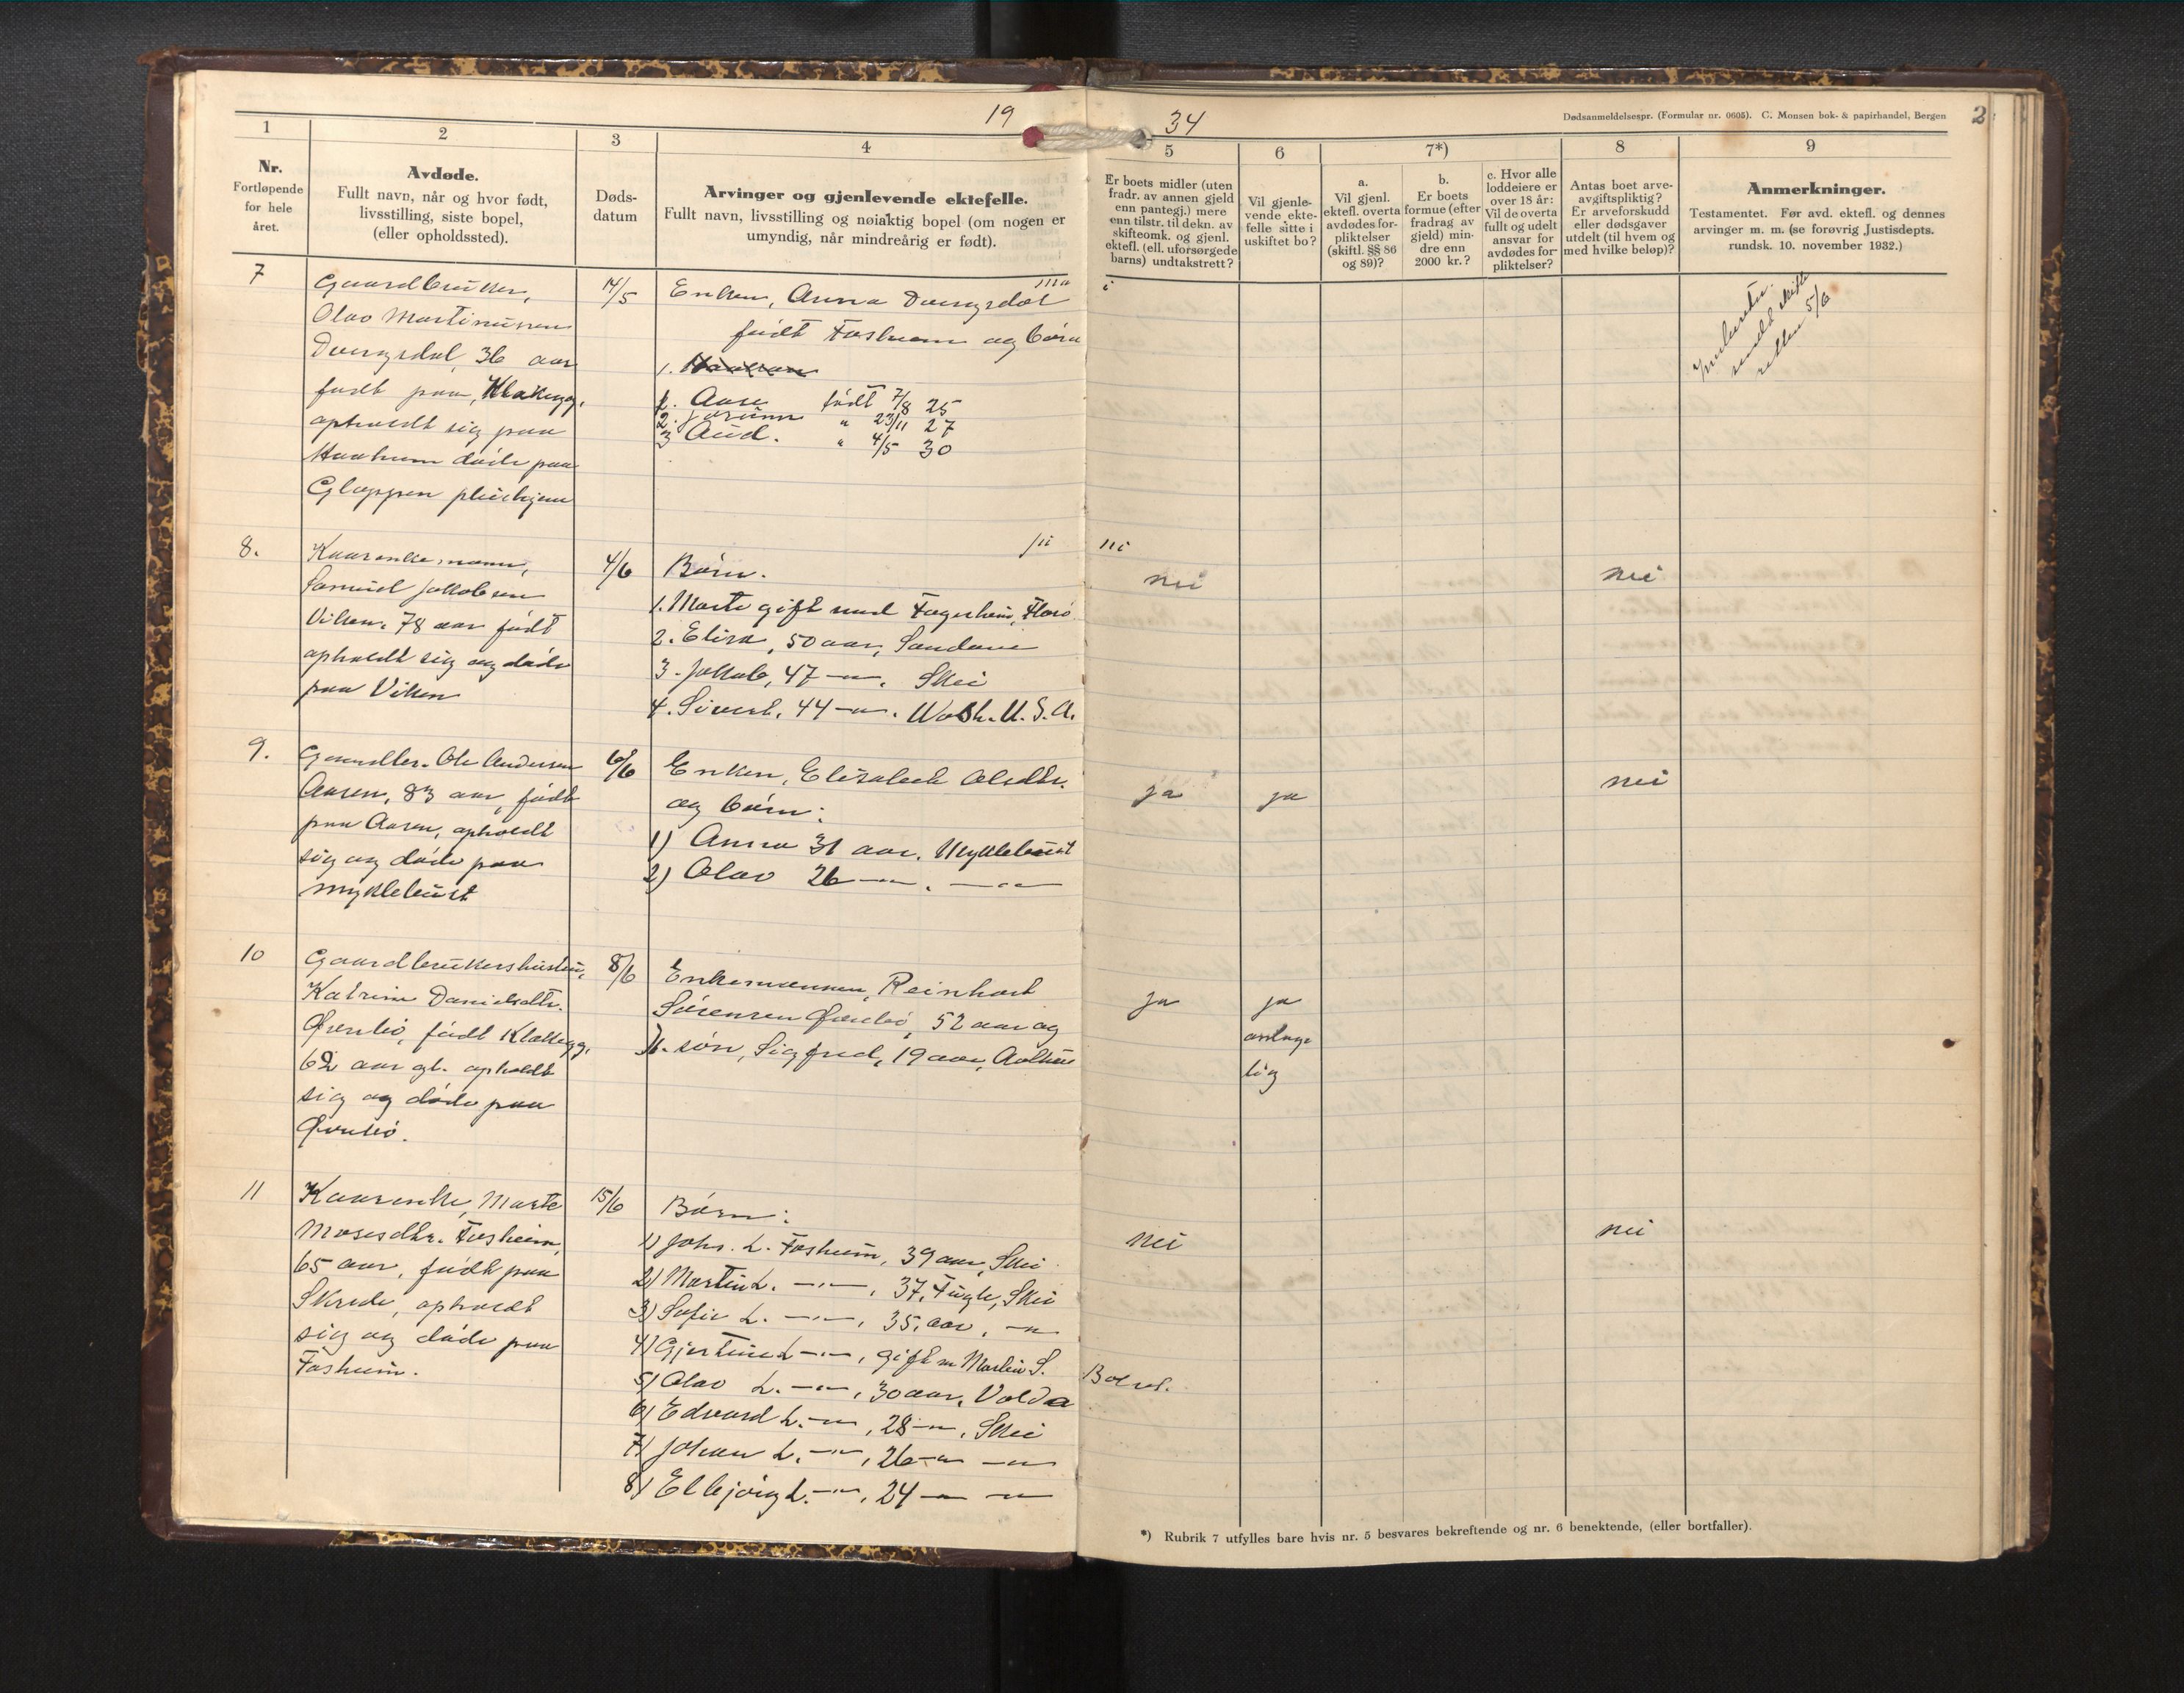 19
34
Dødsanmeldelsespr. (Formular nr. 0605). C. Monsen bok- & papirhandel, Bergen
2
1
2
3
4
5
6
7*)
8
9
Nr.
Fortløpende
for hele
året.
Avdøde.
Fullt navn, når og hvor født,
livsstilling, siste bopel,
(eller opholdssted).
Døds-
datum
Arvinger og gjenlevende ektefelle.
Fullt navn, livsstilling og nøiaktig bopel (om nogen er
umyndig, når mindreårig er født).
Er boets midler (uten
fradr. av annen gjeld
enn pantegj.) mere
enn tilstr. til dekn. av
skifteomk. og gjenl.
ektefl. (ell. uforsørgede
barns) undtakstrett?
Vil gjenle-
vende ekte-
felle sitte i
uskiftet bo?
a.
Vil gjenl.
ektefl. overta
avdødes for-
pliktelser
(skiftl. §§ 86
og 89)?
b.
Er boets
formue (efter
fradrag av
gjeld) min-
dre enn
2000 kr.?
c. Hvor alle
loddeiere er
over 18 år:
Vil de overta
fullt og udelt
ansvar for
avdødes for-
pliktelser?
Antas boet arve-
avgiftspliktig?
Er arveforskudd
eller dødsgaver
utdelt (til hvem og
med hvilke beløp)?
Anmerkninger.
Testamentet. Før avd. ektefl. og dennes
arvinger m. m. (se forøvrig Justisdepts.
rundsk. 10. november 1932.)
7
Gaardbruker,
Olav Martinussen
Dvergsdal, 36 aar
født paa Klakegg,
opholdt sig paa
døde paa
Gloppen pleiehjem
14/5
Enken, Anna Dvergsdal
født Fosheim og børn
1.
1. Aase født 7/8 25
2. Jorunn " 23/11 27
3 Aud. " 4/5 30
5/6
8.
Kaarenkemann,
Samuel Jakobsen
Viken, 78 aar født
opholdt sig og døde
paa Viken
4/6
Børn.
1. Marte gift med Fagerheim, Florø
2. Elisa, 50 aar, Sandane
3. Jakob, 47 -"-. Skei
4. Sivert, 44 -"-. Wash. U.S.A.
nei
nei
9.
Gaardbr. Ole Andersen
Aasen, 83 aar, født
paa Aasen, opholdt
sig og døde paa
Myklebust
6/6
Enken, Elisabeth Olsdtr.
og børn:
1) Anna 31 aar. Myklebust
2) Olav 26 -"-. -"-
ja
ja
nei
10
Gaardbrukershustru,
Katrine Danielsdtr.
Øvrebø, født Klakegg,
62 aar gl. opholdt
sig og døde paa
Øvrebø.
8/6
Enkemannen, Reinhart
Sørensen Øvrebø, 52 aar og
søn, Sigfred, 19 aar,
ja
ja
antage
lig
11
Kaarenke, Marte
Mosesdtr. Fosheim,
65 aar, født paa
Skrede, opholdt
sig og døde paa
Fosheim.
15/6
Børn:
1) Johs. L. Fosheim, 39 aar, Skei
2) Martin L. -"-, 37, Fugle, Skei
3) Sofie L. -"-, 35, aar, -"-
4) Gjertine L -"-, gift m Martin S.
5) Olav L. -"-, 30 aar, Volda
6) Edvard L. -"-, 28 -"-, Skei
7) Johan L. -"-, 26 -"- -"-
8) Ellbjørg L. -"-, 24 -"- -"-
nei
nei
*) Rubrik 7 utfylles bare hvis nr. 5 besvares bekreftende og nr. 6 benektende, (eller bortfaller).